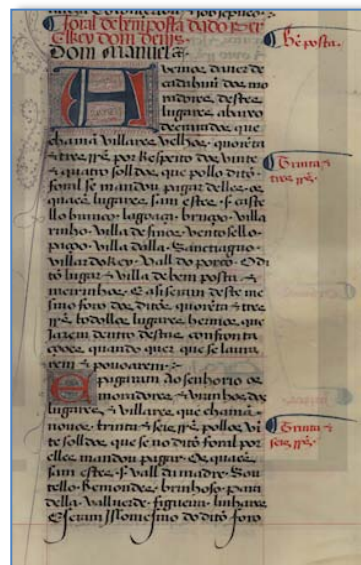 foral de bem posta dado per
El Rey dom denis.
Dom Manuel &c.
Bẽ posta.
Avemos daver de
cada huũ dos mo
radores destes
lugares abaixo
decraudos que
chamã villares velhos · quorẽta
& tres rrs̃ por Respeito dos vinte
& quatro solldos que pollo dito
foral se mandou pagar delles os
quaees lugares sam estes · s · caste
llo branco · lagoaça · bruço · villa
rinho · villa de sinos · vento sello
paço · villa dalla · Sanctiaguo ·
villar do Rey · Vall do porco · O di
to lugar & villa de bem posta &
meirinhos · E asi seram deste me
smo foro dos ditos quorẽta & tres
rrs̃ todollos lugares hermos que
Jazem dentro destas confronta
çoões quando quer que se laura
rem & pouoarem ·
Trinta &
tres rrs̃ ·
E pagaram ao senhorio os
moradores & vizinhos dos
lugares & villares que chamã
nouos · trinta & seis rrs̃ pollos viĩ
te solldos que se no dito foral por
elles mandou pagar · Os quaees
sam estes · s · vall da madre · Sou
tello · Remondes · brinhoso · para
della · vallverde · figueira · linhares
E seram Isso mesmo do dito foro
Trinta &
seis rrs̃ ·